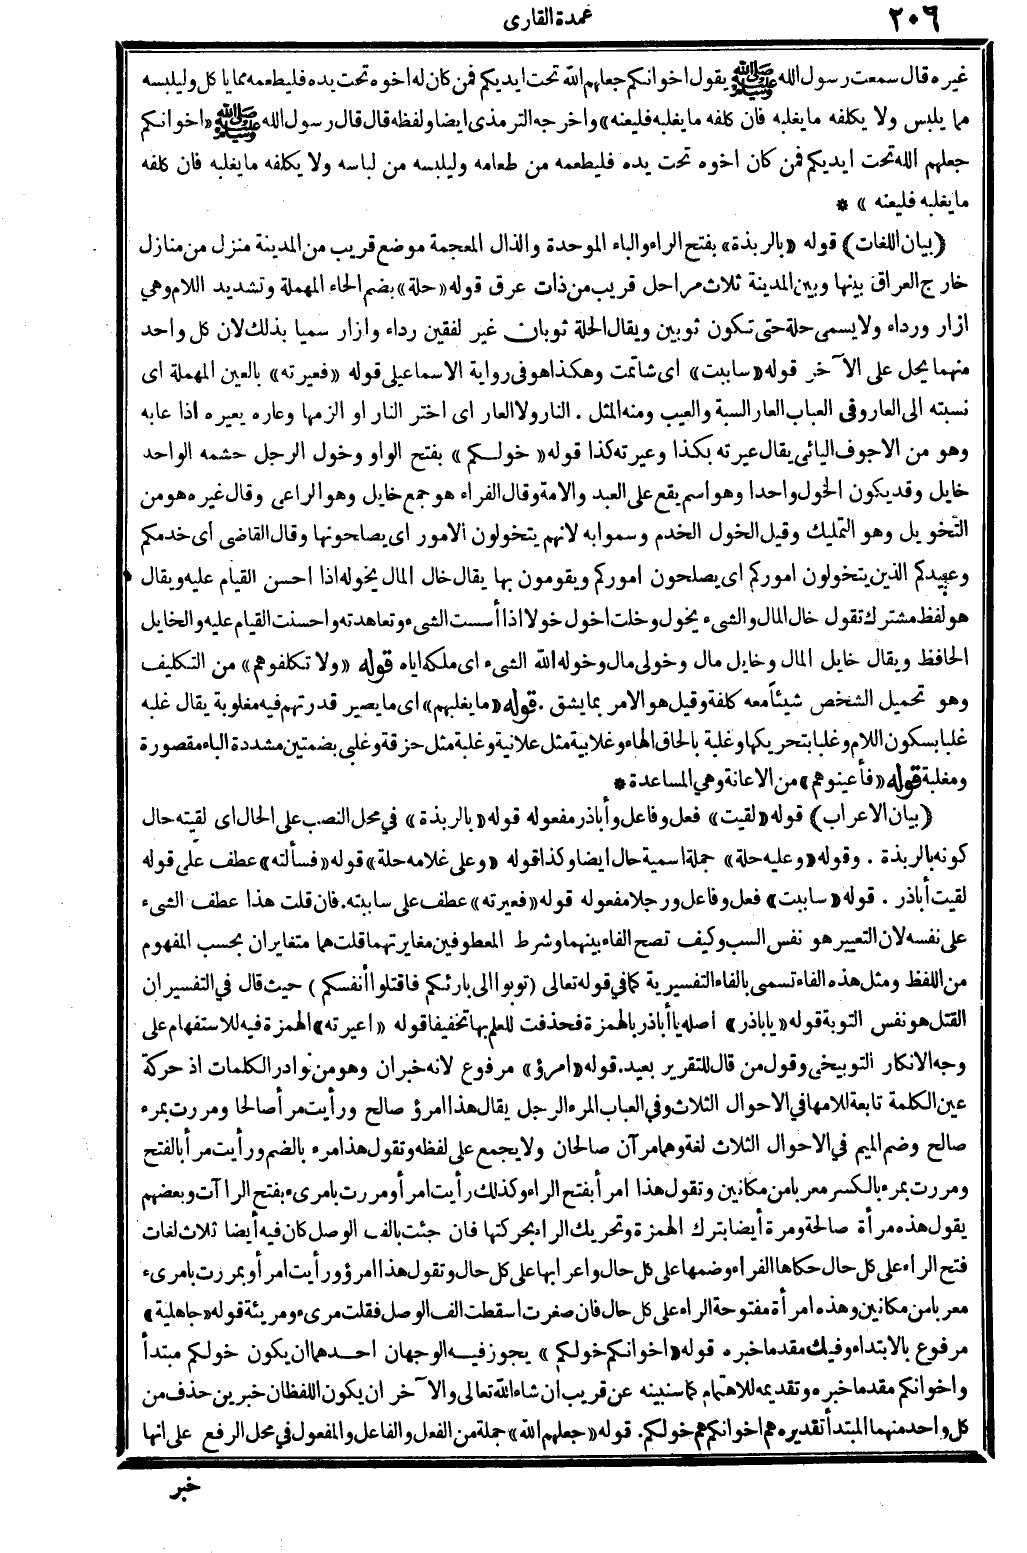 ٢٠٦
عمدة القارى
غيره قال سمعت رسول الله ﷺ يقول اخوانكم جعلهم الله تحت ايديكم فمن كان له اخوه تحت يده فليطعمه مما يا كل وليلبسه
مما يلبس ولا يكلفه ما يغلبه فان كلفه ما يغلبه فليعنه» واخرجه الترمذى ايضا ولفظه قال قال رسول الله ﷺ «اخوانكم
جعلهم الله تحت ايديكم فمن كان اخوه تحت يده فليطعمه من طعامه وليلبسه من لباسه ولا يكلفه ما يغلبه فان كلفه
ما يغلبه فليعنه » *
(بيان اللغات) قوله «بالربذة» بفتح الراء والباء الموحدة والذال المعجمة موضع قريب من المدينة منزل من منازل
خارج العراق بينها وبين المدينة ثلاث مراحل قريب من ذات عرق قوله «حلة» بضم الحاء المهملة وتشديد اللام وهي
ازار ورداء ولا يسمى حلة حتى تكون ثوبين ويقال الحلة ثوبان غير لفقين رداء وازار سميا بذلك لان كل واحد
منهما يحل على الآخر قوله «ساببت» اى شاتمت وهكذا هو فى رواية الاسماعيلى قوله «فعيرته» بالعين المهملة اى
نسبته الى العار وفى العباب العار السبة والعيب ومنه المثل . النار ولا العار اى اختر النار او الزمها وعاره يعيره اذا عابه
وهو من الاجوف اليائى يقال عيرته بكذا وعيرته كذا قوله « خولكم » بفتح الواو وخول الرجل حشمه الواحد
خايل وقد يكون الخول واحدا وهو اسم يقع على العبد والامة وقال الفراء هو جمع خايل وهو الراعى وقال غيره هو من
التخويل وهو التمليك وقيل الخول الخدم وسموا به لانهم يتخولون الامور اى يصلحونها وقال القاضى اى خدمكم
وعبيدكم الذين يتخولون اموركم اى يصلحون اموركم ويقومون بها يقال خال المال يخوله اذا احسن القيام عليه ويقال
هو لفظ مشترك تقول خال المال والشىء يخول وخلت اخول خولا اذا أسست الشىء وتعاهدته واحسنت القيام عليه والخايل
الحافظ ويقال خايل المال وخايل مال وخولى مال وخوله الله الشىء اى ملكه اياه قوله «ولا تكلفوهم» من التكليف
وهو تحميل الشخص شيئا معه كلفة وقيل هو الامر بما يشق . قوله «ما يغلبهم» اى ما يصير قدرتهم فيه مغلوبة يقال غلبه
غلبا بسكون اللام وغلبا بتحريكها وغلبة بالحاق الهاء وغلابية مثل علانية وغلبة مثل حزقة وغلبى بضمتين مشددة الباء مقصورة
ومغلبة قوله «فأعينوهم» من الاعانة وهي المساعدة *
(بيان الاعراب) قوله «لقيت» فعل وفاعل وأباذر مفعوله قوله «بالربذة» في محل النصب على الحال اى لقيته حال
كونه بالربذة . وقوله «وعليه حلة» جملة اسمية حال ايضا وكذا قوله «وعلى غلامه حلة» قوله «فسألته» عطف على قوله
لقيت أباذر . قوله «ساببت» فعل وفاعل ورجلا مفعوله قوله «فعيرته» عطف على ساببته. فان قلت هذا عطف الشىء
على نفسه لان التعيير هو نفس السب وكيف تصح الفاء بينهما وشرط المعطوفين مغايرتهما قلت هما متغايران بحسب المفهوم
من اللفظ ومثل هذه الفاء تسمى بالفاء التفسيرية كما في قوله تعالى (توبوا الى بارئكم فاقتلوا أنفسكم) حيث قال في التفسير ان
القتل هو نفس التوبة قوله «ياباذر» اصله يا أباذر بالهمزة فحذفت للعلم بها تخفيفا قوله «اعيرته» الهمزة فيه للاستفهام على
وجه الانكار التوبيخى وقول من قال للتقرير بعيد. قوله «امرؤ» مرفوع لانه خبر ان وهو من نوادر الكلمات اذ حركة
عين الكلمة تابعة للامها في الاحوال الثلاث وفي العباب المرء الرجل يقال هذا امرؤ صالح ورأيت مرأ صالحا ومررت بمرء
صالح وضم الميم في الاحوال الثلاث لغة وهما مرآن صالحان ولا يجمع على لفظه وتقول هذا مرء بالضم ورأيت مرأ بالفتح
ومررت بمرء بالكسر معربا من مكانين وتقول هذا امرأ بفتح الراء وكذلك رأيت امرأ ومررت بامرىء بفتح الراآت وبعضهم
يقول هذه مرأة صالحة ومرة أيضا بترك الهمزة وتحريك الراء بحركتها فان جئت بالف الوصل كان فيه أيضا ثلاث لغات
فتح الراء على كل حال حكاها الفراء وضمها على كل حال واعرابها على كل حال وتقول هذا امرؤ ورأيت امرأ ومررت بامرىء
معربا من مكانين وهذه امرأة مفتوحة الراء على كل حال فان صغرت اسقطت الف الوصل فقلت مرىء ومريئة قوله «جاهلية»
مرفوع بالابتداء وفيك مقدما خبره قوله «اخوانكم خولكم » يجوز فيه الوجهان احدهما ان يكون خولكم مبتدأ
واخوانكم مقدما خبره وتقديمه للاهتمام كما سنبينه عن قريب ان شاء الله تعالى والآخر ان يكون اللفظان خبرين حذف من
كل واحد منهما المبتدأ تقديره هم اخوانكم هم خولكم. قوله «جعلهم الله» جملة من الفعل والفاعل والمفعول في محل الرفع على انها
خبر